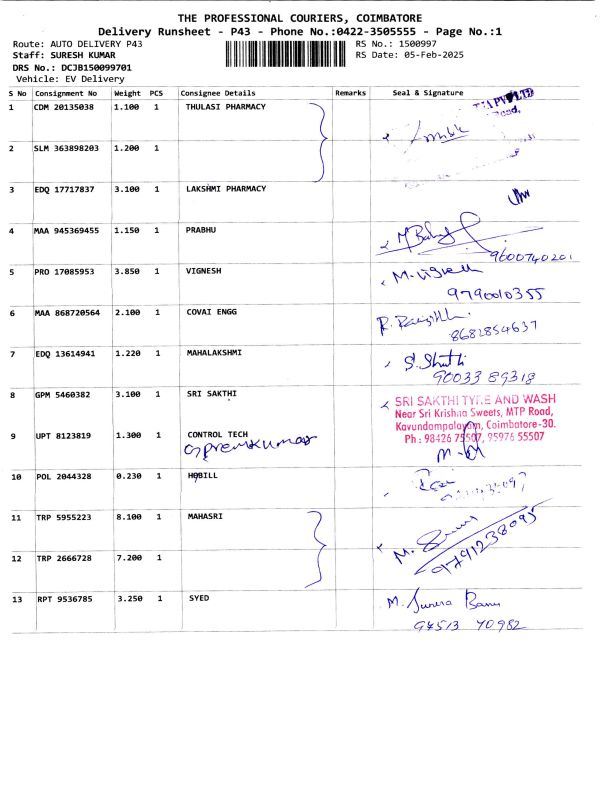 THE PROFESSIONAL COURIERS, COIMBATORE
Delivery Runsheet - P43 - Phone No.:0422-3505555 - Page No.:1
Route: AUTO DELIVERY P43
RS No.: 1500997
Staff: SURESH KUMAR
RS Date: 05-Feb-2025
DRS No.: DCJB150099701
Vehicle: EV Delivery
S No Consignment No Weight PCS Consignee Details Remarks Seal & Signature
1 CDM 20135038 1.100 1 THULASI PHARMACY
Road,
2 SLM 363898203 1.200 1
3 EDQ 17717837 3.100 1 LAKSHMI PHARMACY
4 MAA 945369455 1.150 1 PRABHU
9600740201
5 PRO 17085953 3.850 1 VIGNESH M. Vignesh
9790010355
6 MAA 868720564 2.100 1 COVAI ENGG
8682854637
7 EDQ 13614941 1.220 1 MAHALAKSHMI
9003389318
8 GPM 5460382 3.100 1 SRI SAKTHI
SRI SAKTHI TYRE AND WASH
Near Sri Krishna Sweets, MTP Road,
Kavundampalayam, Coimbatore-30.
Ph : 98426 75507, 95976 55507
9 UPT 8123819 1.300 1 CONTROL TECH
G premkumar
10 POL 2044328 0.230 1 HOBILL
11 TRP 5955223 8.100 1 MAHASRI
9791238095
12 TRP 2666728 7.200 1
13 RPT 9536785 3.250 1 SYED M. Banu
94513 70982